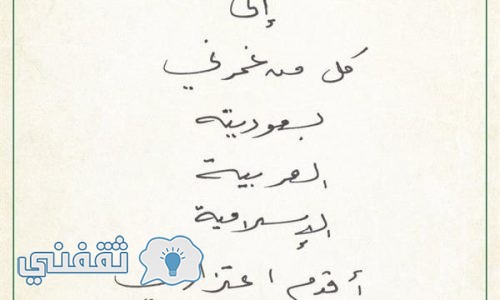 إلى
كل من غمرني
بسعوديته
العربية
الإسلامية
ثقفني
أقدم